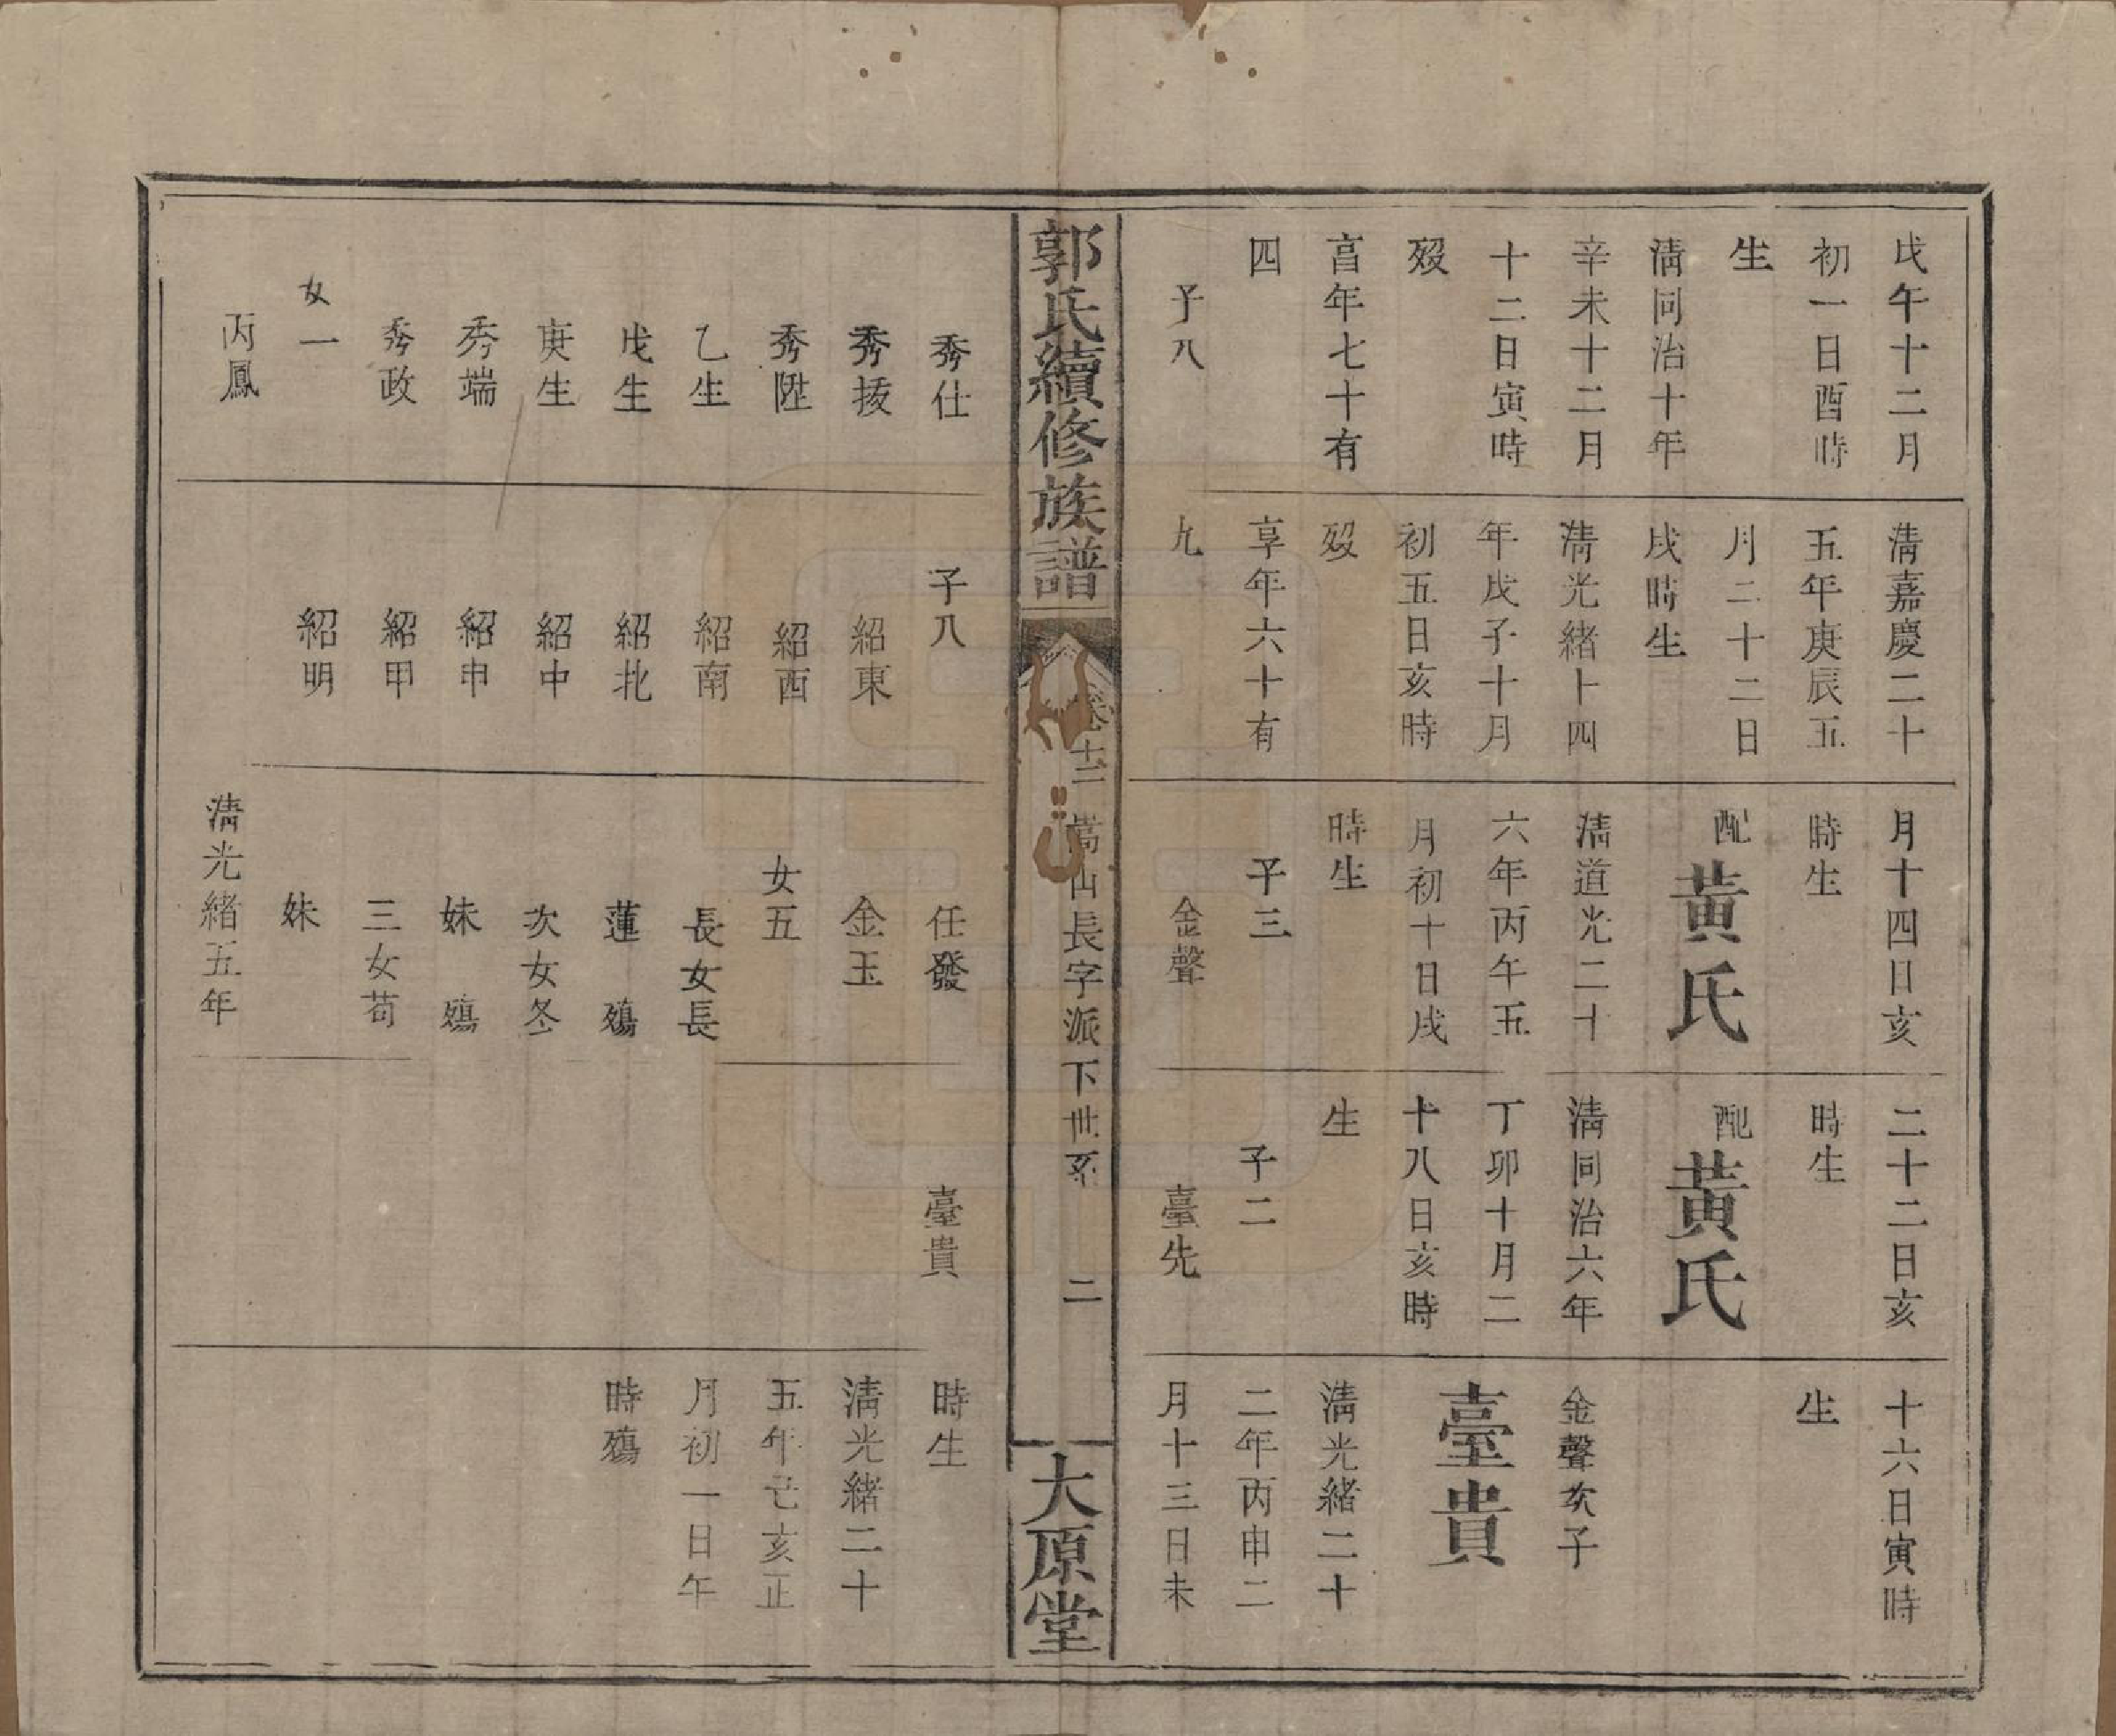 戊午十二月
初一日酉時
生
清同治十年
辛未十二月
十二日寅時
歿
亯年七十有
四
子八
清嘉慶二十
五年庚辰五
月二十二日
戌時生
清光緒十四
年戊子十月
初五日亥時
歿
享年六十有
九
月十四日亥
時生
配黃氏
清道光二十
六年丙午五
月初十日戌
時生
子三
金聲
二十二日亥
時生
配黃氏
清同治六年
丁卯十月二
十八日亥時
生
子二
臺先
十六日寅時
生
金聲次子
臺貴
清光緒二十
二年丙申二
月十三日未
郭氏續修族譜
卷十二
嵩山長字派下世系
二
大原堂
秀仕
秀拔
秀陞
乙生
戊生
庚生
秀端
秀政
女一
丙鳳
子八
紹東
紹西
紹南
紹北
紹中
紹申
紹甲
紹明
任發
金玉
女五
長女長
蓮 殤
次女冬
妹 殤
三女苟
妹
清光緒五年
臺貴
時生
清光緒二十
五年己亥正
月初一日午
時殤